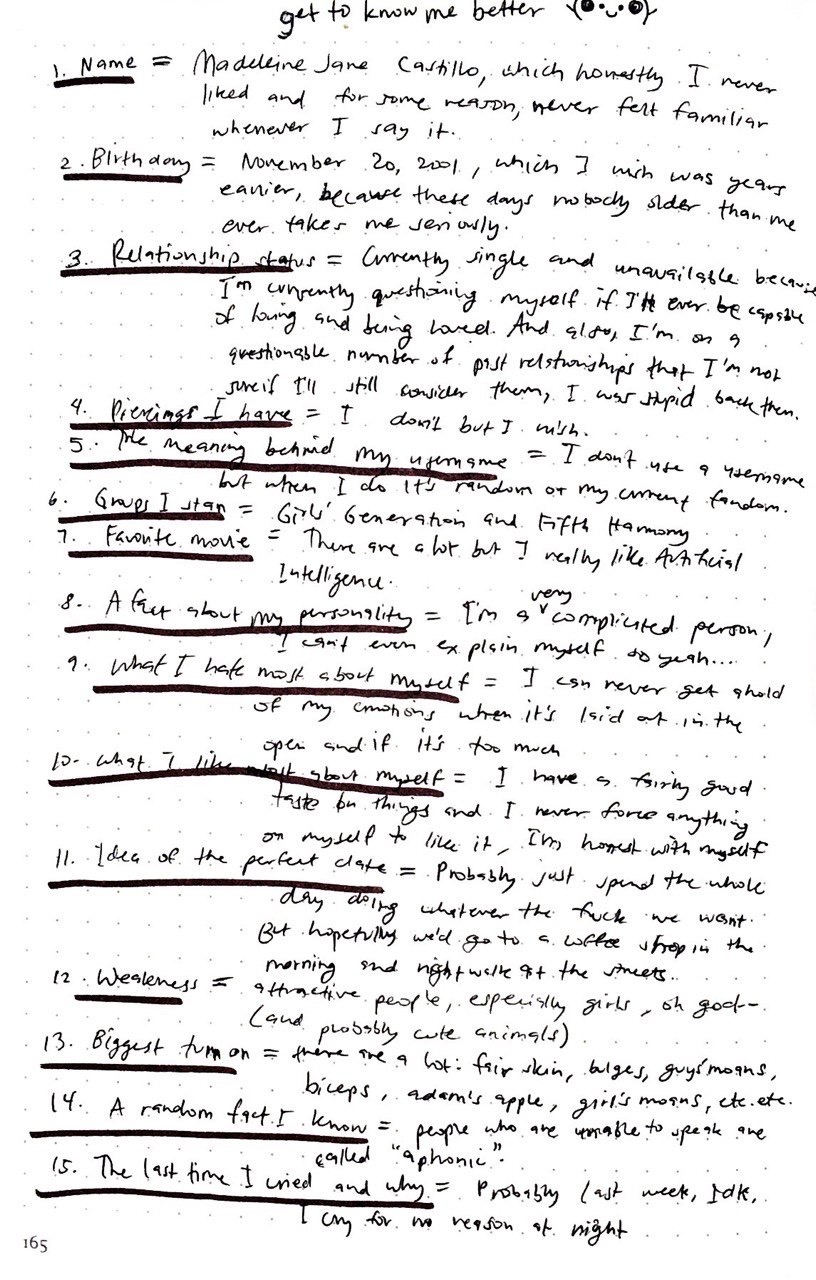 get to know me better
1. Name = Madeleine Jane Castillo, which honestly I never
liked and for some reason, never felt familiar
whenever I say it.
2. Birthday = November 20, 2001, which I wish was years
earlier, because these days nobody older than me
ever takes me seriously.
3. Relationship status = Currently single and unavailable because
I'm currently questioning myself if I'll ever be capable
of loving and being loved. And also, I'm on a
questionable number of past relationships that I'm not
sure if I'll still consider them, I was stupid back then.
4. Piercings I have = I don't but I wish.
5. The meaning behind my username = I don't use a username
but when I do it's random or my current fandom.
6. Groups I stan = Girls' Generation and Fifth Harmony
7. Favorite movie = There are a lot but I really like Artificial
Intelligence.
8. A fact about my personality = I'm a very complicated person,
I can't even explain myself so yeah...
9. What I hate most about myself = I can never get ahold
of my emotions when it's laid out in the
open and if it's too much
10. What I like most about myself = I have a fairly good
taste on things and I never force anything
on myself to like it, I'm honest with myself
11. Idea of the perfect date = Probably just spend the whole
day doing whatever the fuck we want.
But hopefully we'd go to a coffee shop in the
morning and nightwalk at the streets.
12. Weakness = attractive people, especially girls, oh god-
(and probably cute animals)
13. Biggest turn on = there are a lot: fair skin, bulges, guys' moans,
biceps, adam's apple, girl's moans, etc. etc.
14. A random fact I know = people who are unable to speak are
called "aphonic".
15. The last time I cried and why = Probably last week, Idk,
I cry for no reason at night
165